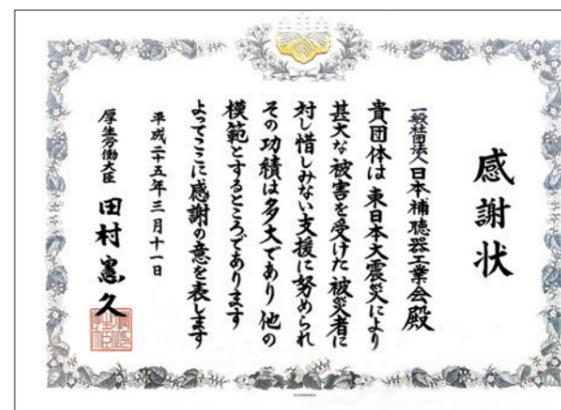 感謝状
一般社団法人日本補聴器工業会殿
貴団体は東日本大震災により
甚大な被害を受けた被災者に
対し惜しみない支援に努められ
その功績は多大であり他の
模範とするところであります
よってここに感謝の意を表します
平成二十五年三月十一日
厚生労働大臣 田村憲久